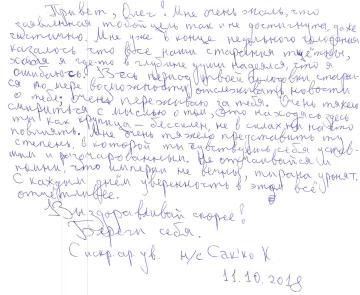 Привет, Олег! Мне очень жаль, что
заявленная тобой цель так и не достигнута, даже
частично. Мне уже в конце недельного голодания
казалось что все наши старания тщетны,
хотя я где-то в глубине души надеялся, что я
ошибаюсь. Весь период твоей голодовки, старал-
ся по мере возможности отслеживать новости
о тебе, очень переживаю за тебя. Очень тяжело
смириться с мыслью о том, что находясь здесь
ты как крупица - бессилен, не в силах ни на что
повлиять. Мне очень тяжело представить ту
степень, в которой ты чувствуешь себя устав-
шим и разочарованным. Не отчаивайся и
помни, что империи не вечны, тирана уронят.
С каждым днём уверенность в этом всё
отчётливее.
Выздоравливай скорее!
Береги себя.
С искр. ув. н/с Сакко К
11.10.2018